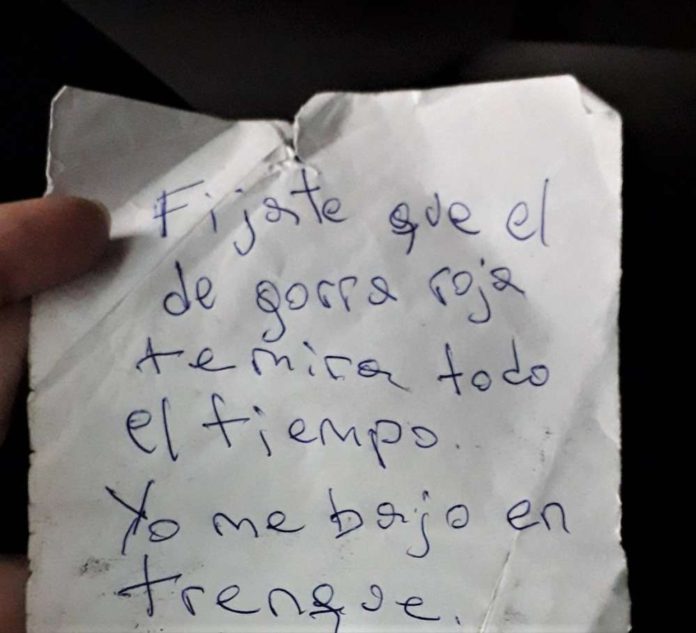 Fijate que el
de gorra roja
te mira todo
el tiempo.
Yo me bajo en
trenque.